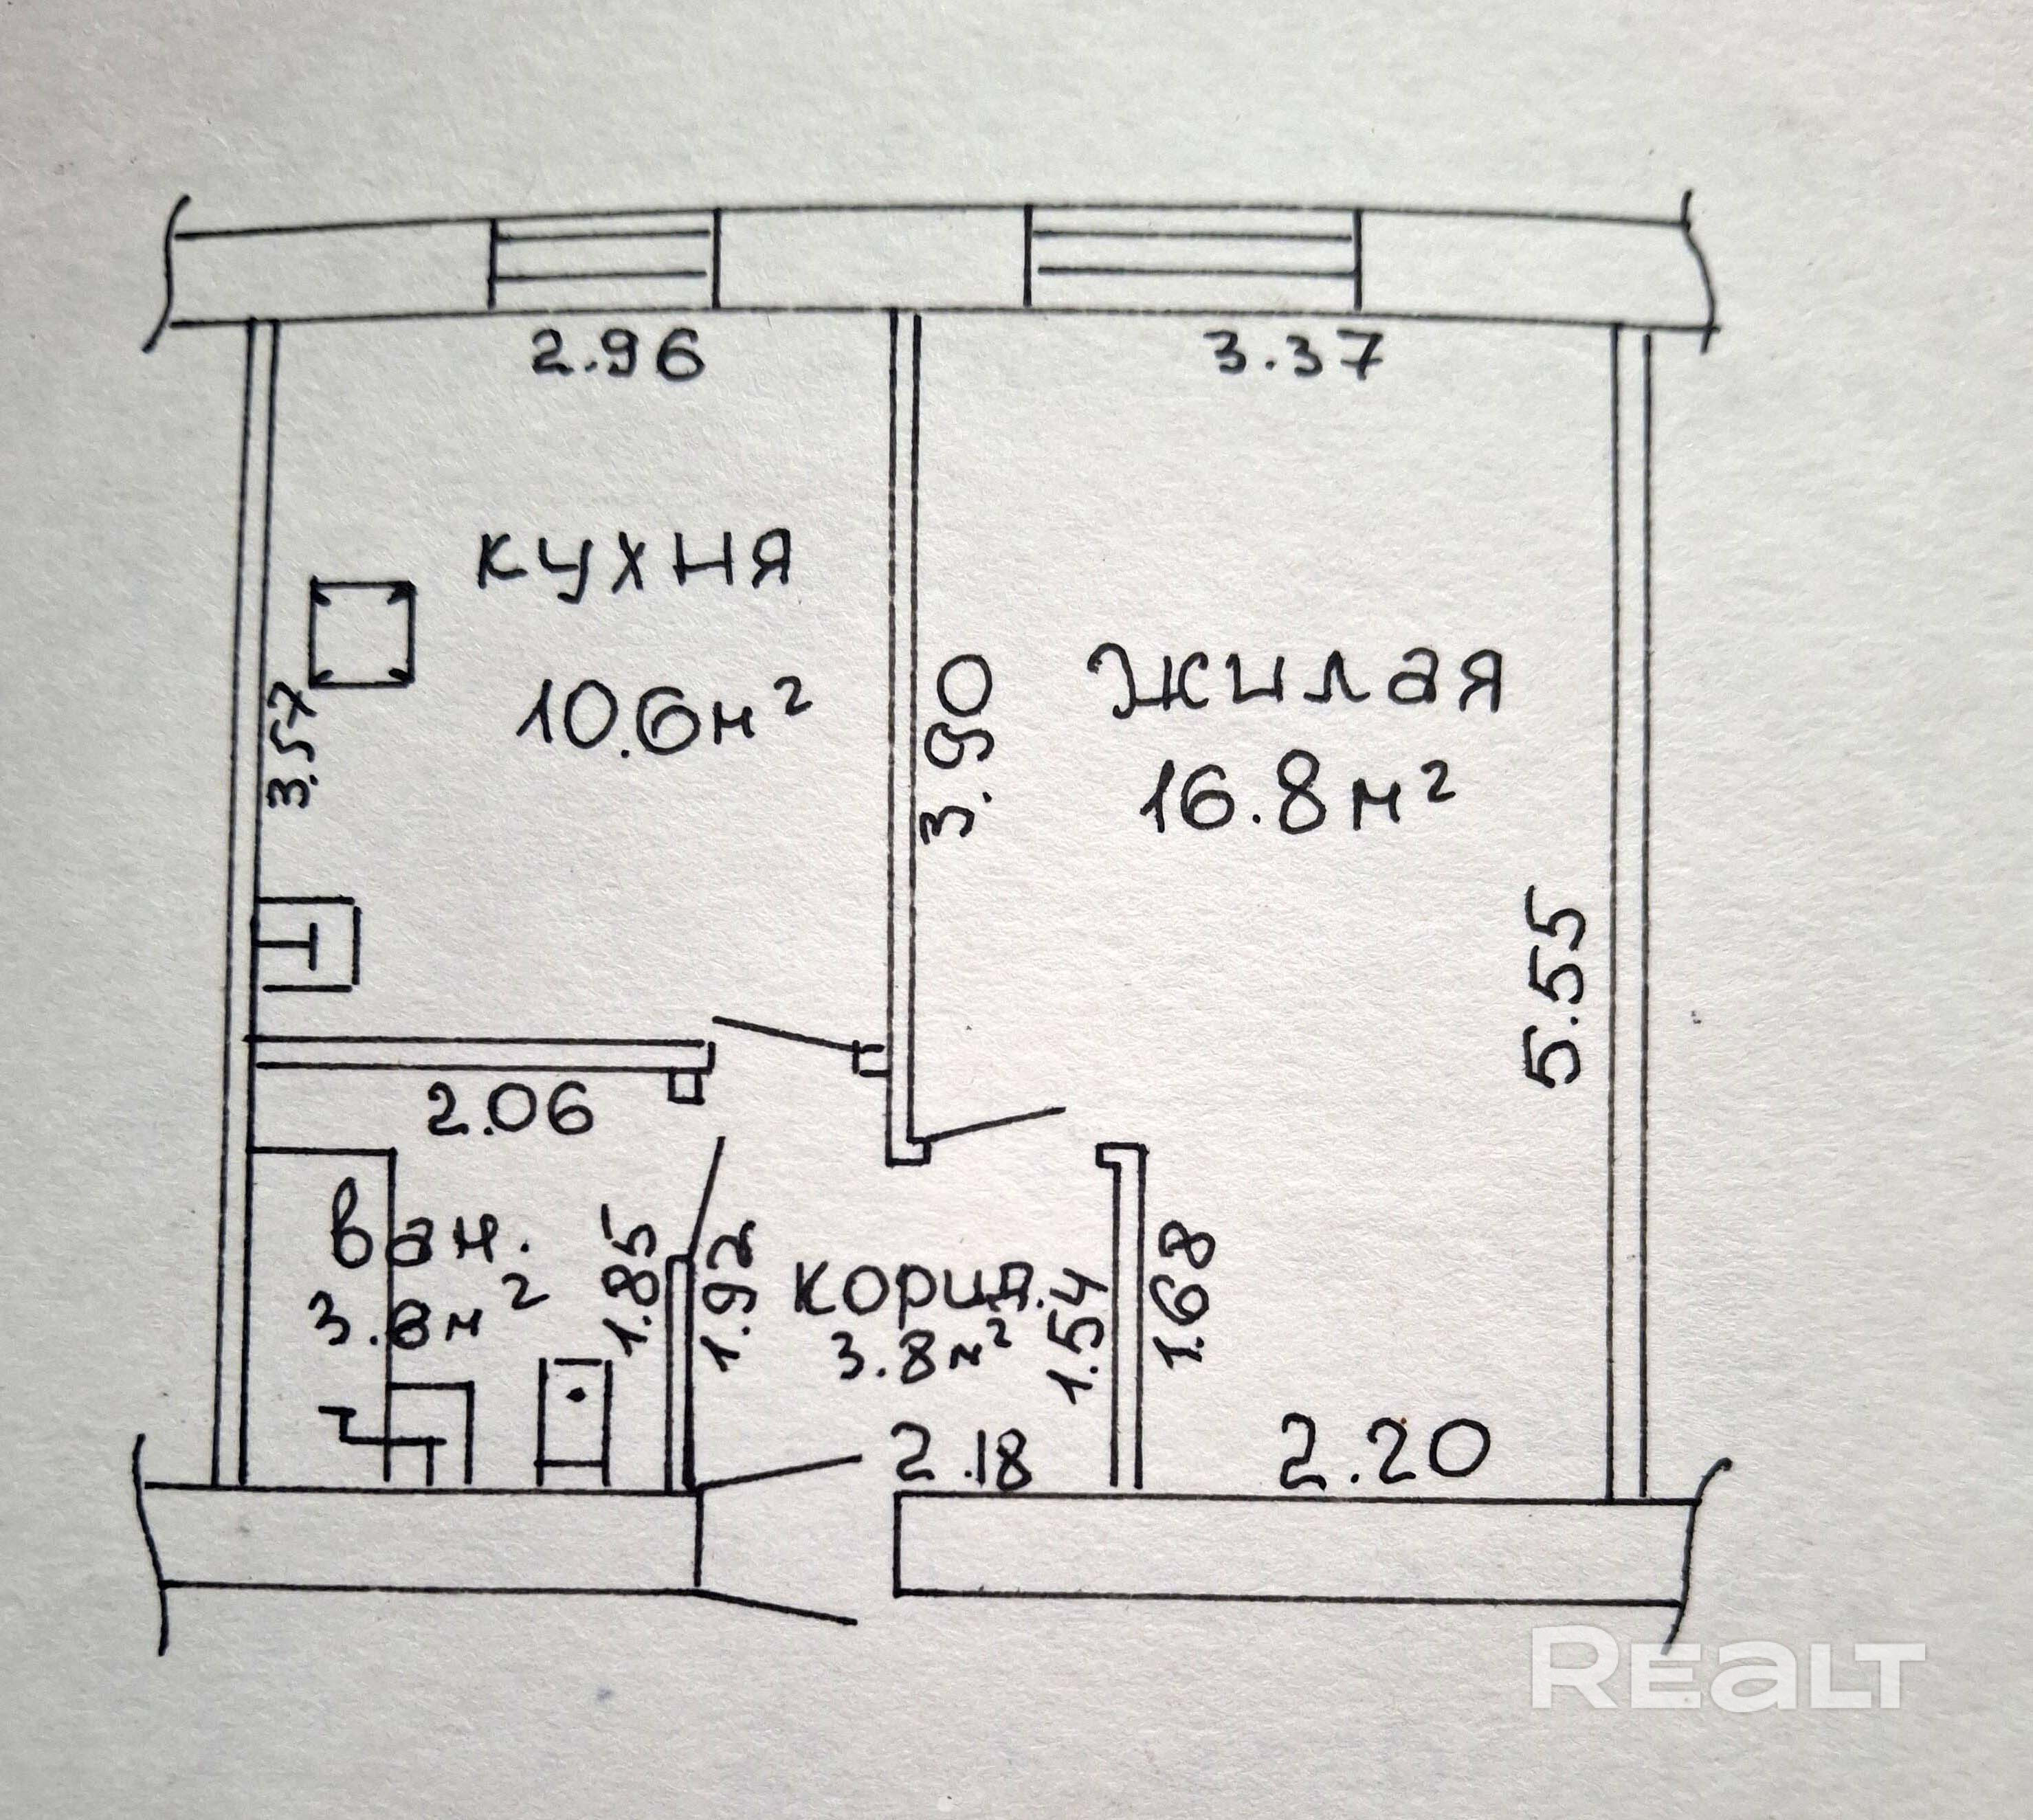 2.96
3.37
кухня
10.6м²
3.57
3.90
жилая
16.8м²
5.55
2.06
ван.
3.8м²
1.85
1.92
корид.
3.8м²
1.54
1.68
2.18
2.20
REALT